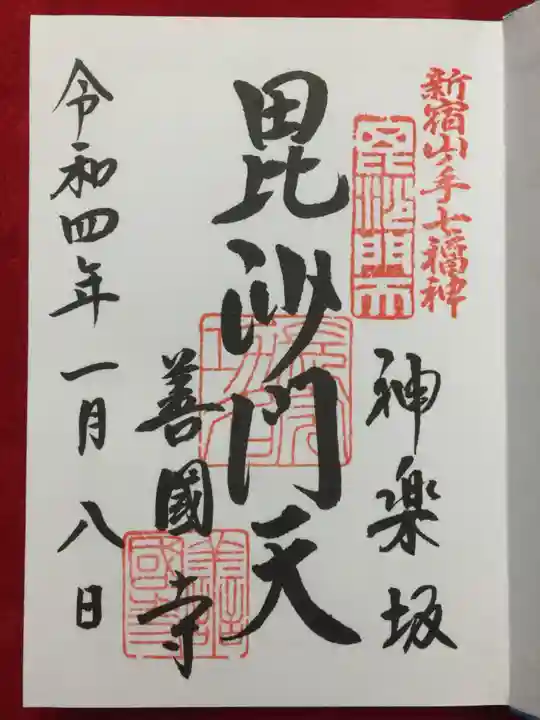 新宿山ノ手七福神
毘沙門天
神楽坂
毘沙門天
善國寺
善國寺
令和四年一月八日